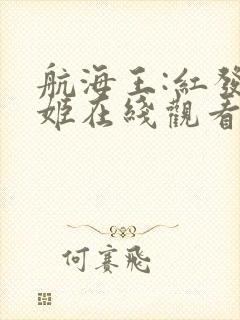 航海王:紅發
姬在綫觀看
何賽飛